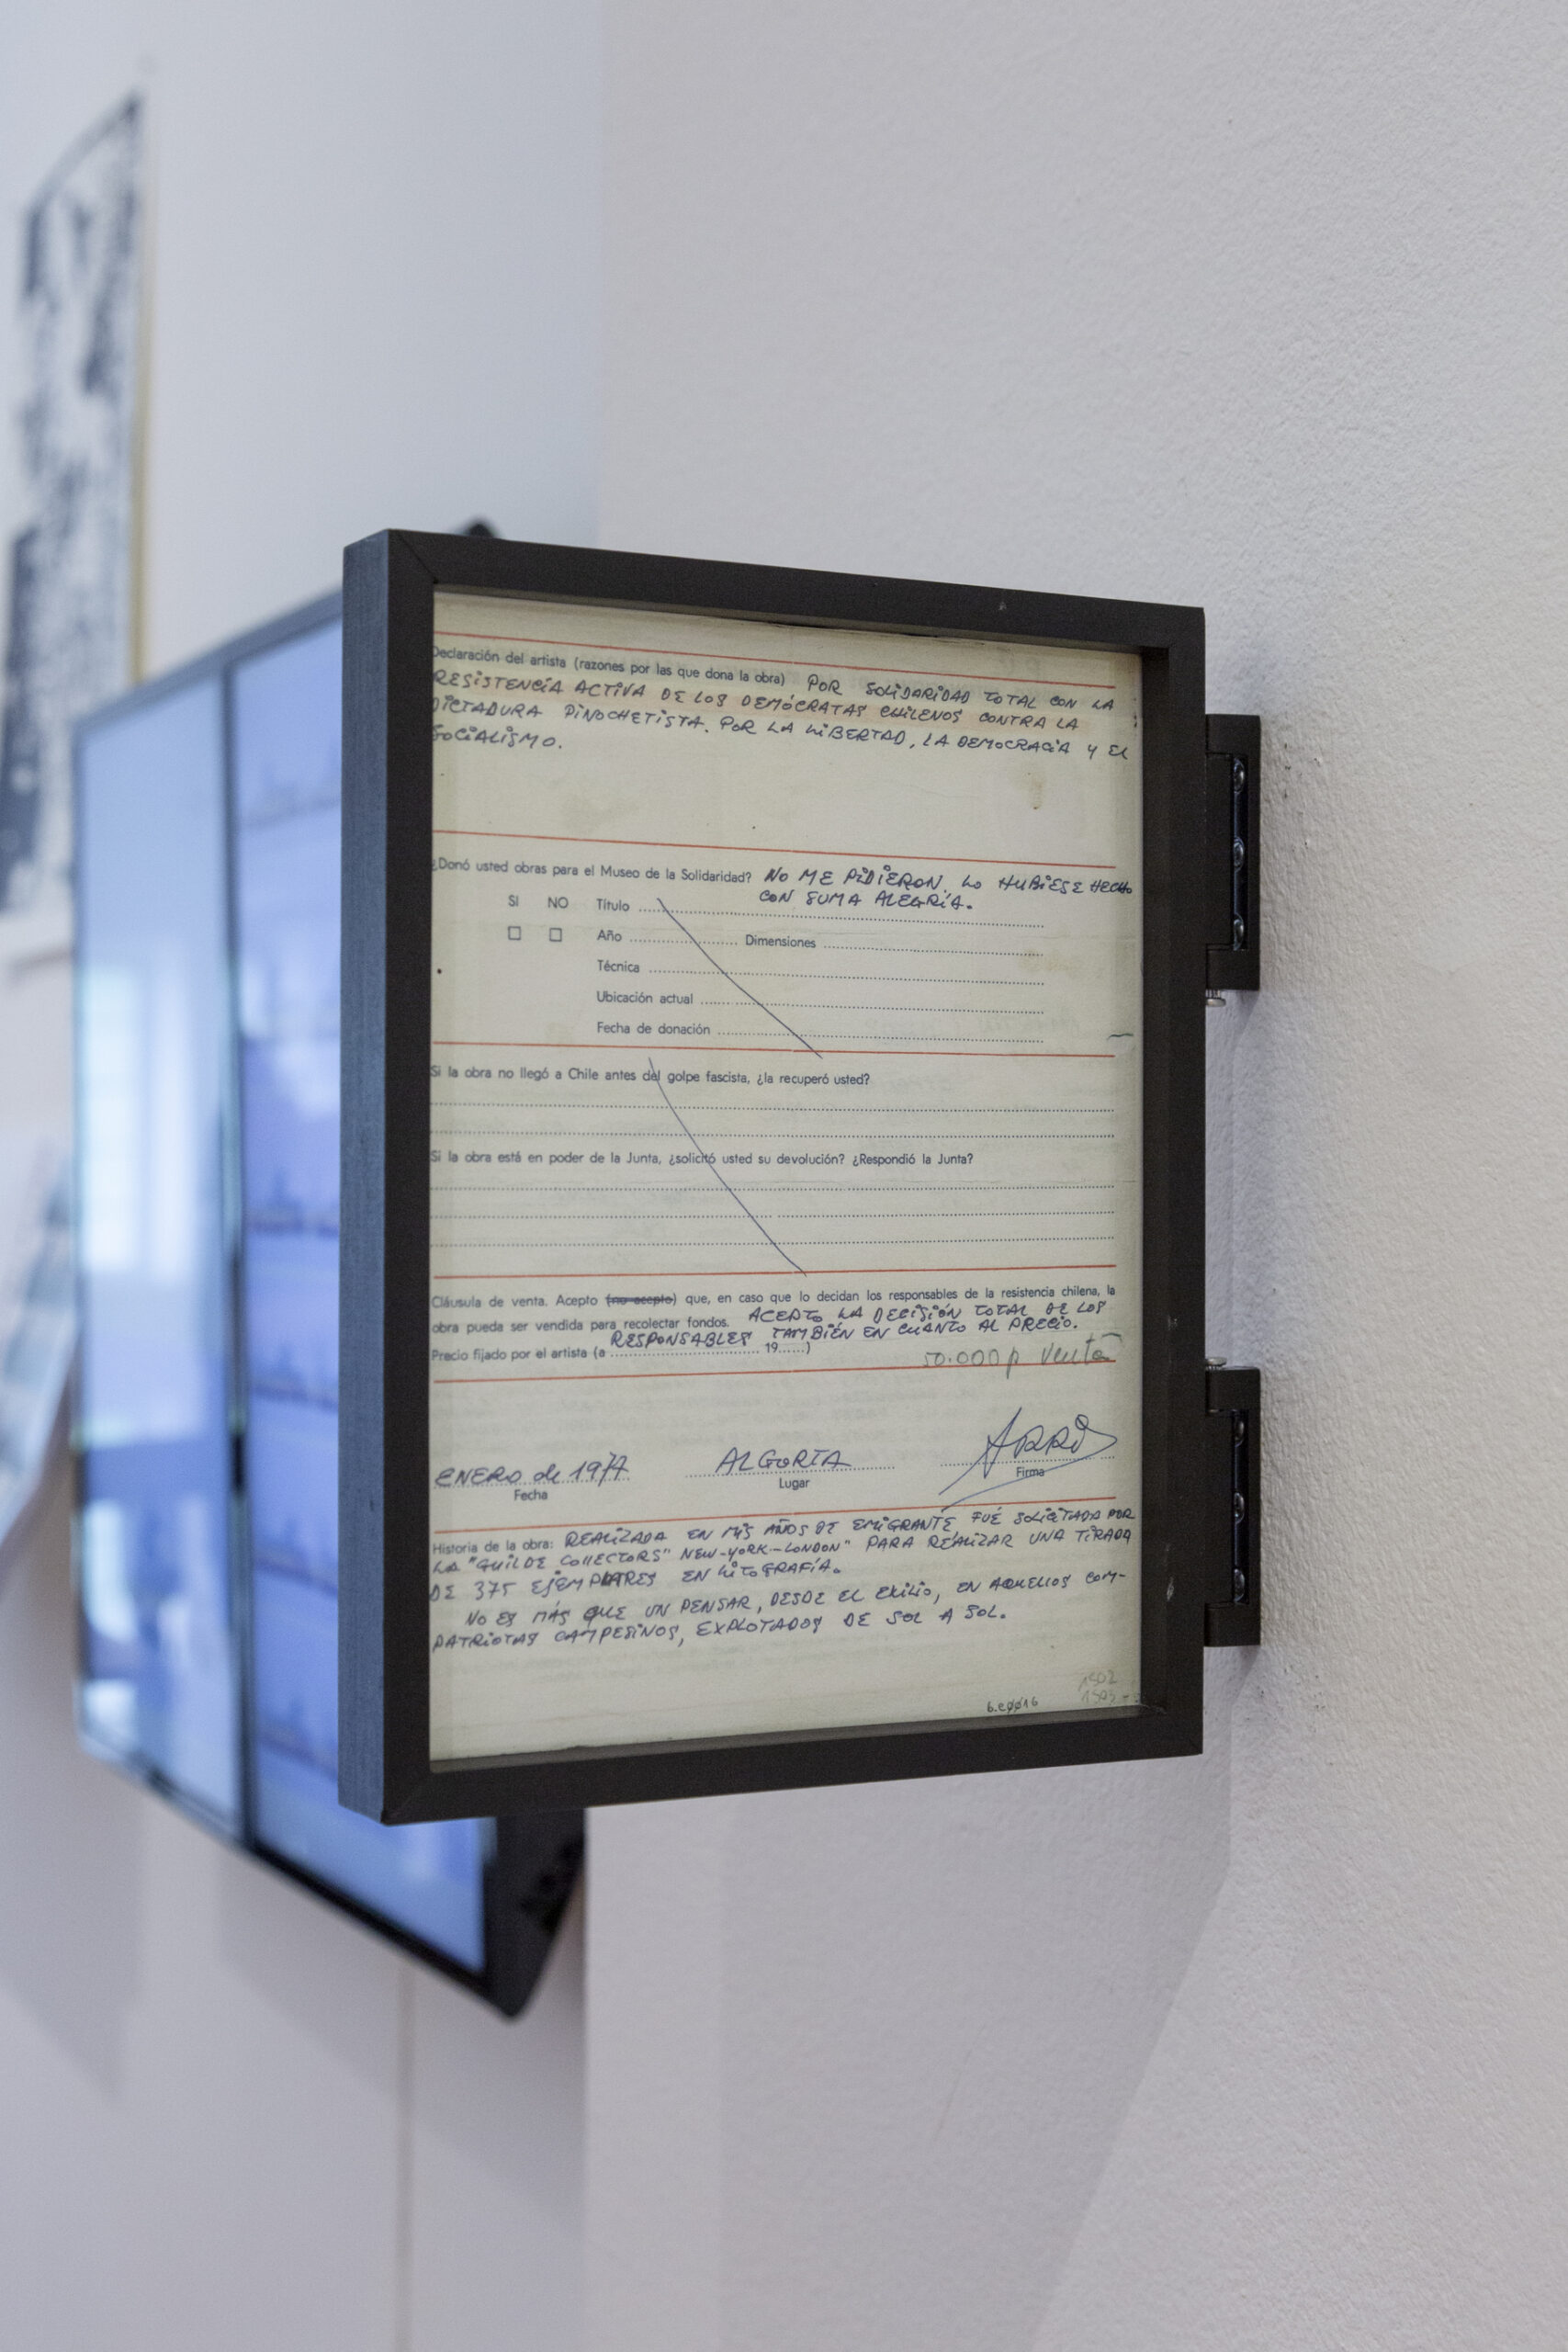 Declaración del artista (razones por las que dona la obra) POR SOLIDARIDAD TOTAL CON LA
RESISTENCIA ACTIVA DE LOS DEMÓCRATAS CHILENOS CONTRA LA
DICTADURA PINOCHETISTA. POR LA LIBERTAD, LA DEMOCRACIA Y EL
SOCIALISMO.
¿Donó usted obras para el Museo de la Solidaridad? NO ME PIDIERON. LO HUBIESE HECHO
CON SUMA ALEGRÍA.
SI NO Título
Año Dimensiones
Técnica
Ubicación actual
Fecha de donación
Si la obra no llegó a Chile antes del golpe fascista, ¿la recuperó usted?
Si la obra está en poder de la Junta, ¿solicitó usted su devolución? ¿Respondió la Junta?
Cláusula de venta. Acepto (no acepto) que, en caso que lo decidan los responsables de la resistencia chilena, la
obra pueda ser vendida para recolectar fondos. ACEPTO LA DECISIÓN TOTAL DE LOS
RESPONSABLES TAMBIÉN EN CUANTO AL PRECIO.
Precio fijado por el artista (a 19......)
50.000 p venta
ENERO de 1977 ALGORTA ARRI
Fecha Lugar Firma
Historia de la obra: REALIZADA EN MIS AÑOS DE EMIGRANTE, FUÉ SOLICITADA POR
LA "GUILDE COLLECTORS" NEW-YORK-LONDON" PARA REALIZAR UNA TIRADA
DE 375 EJEMPLARES EN LITOGRAFÍA.
NO ES MÁS QUE UN PENSAR, DESDE EL EXILIO, EN AQUELLOS COM-
PATRIOTAS CAMPESINOS, EXPLOTADOS DE SOL A SOL.
1502
6.e0016